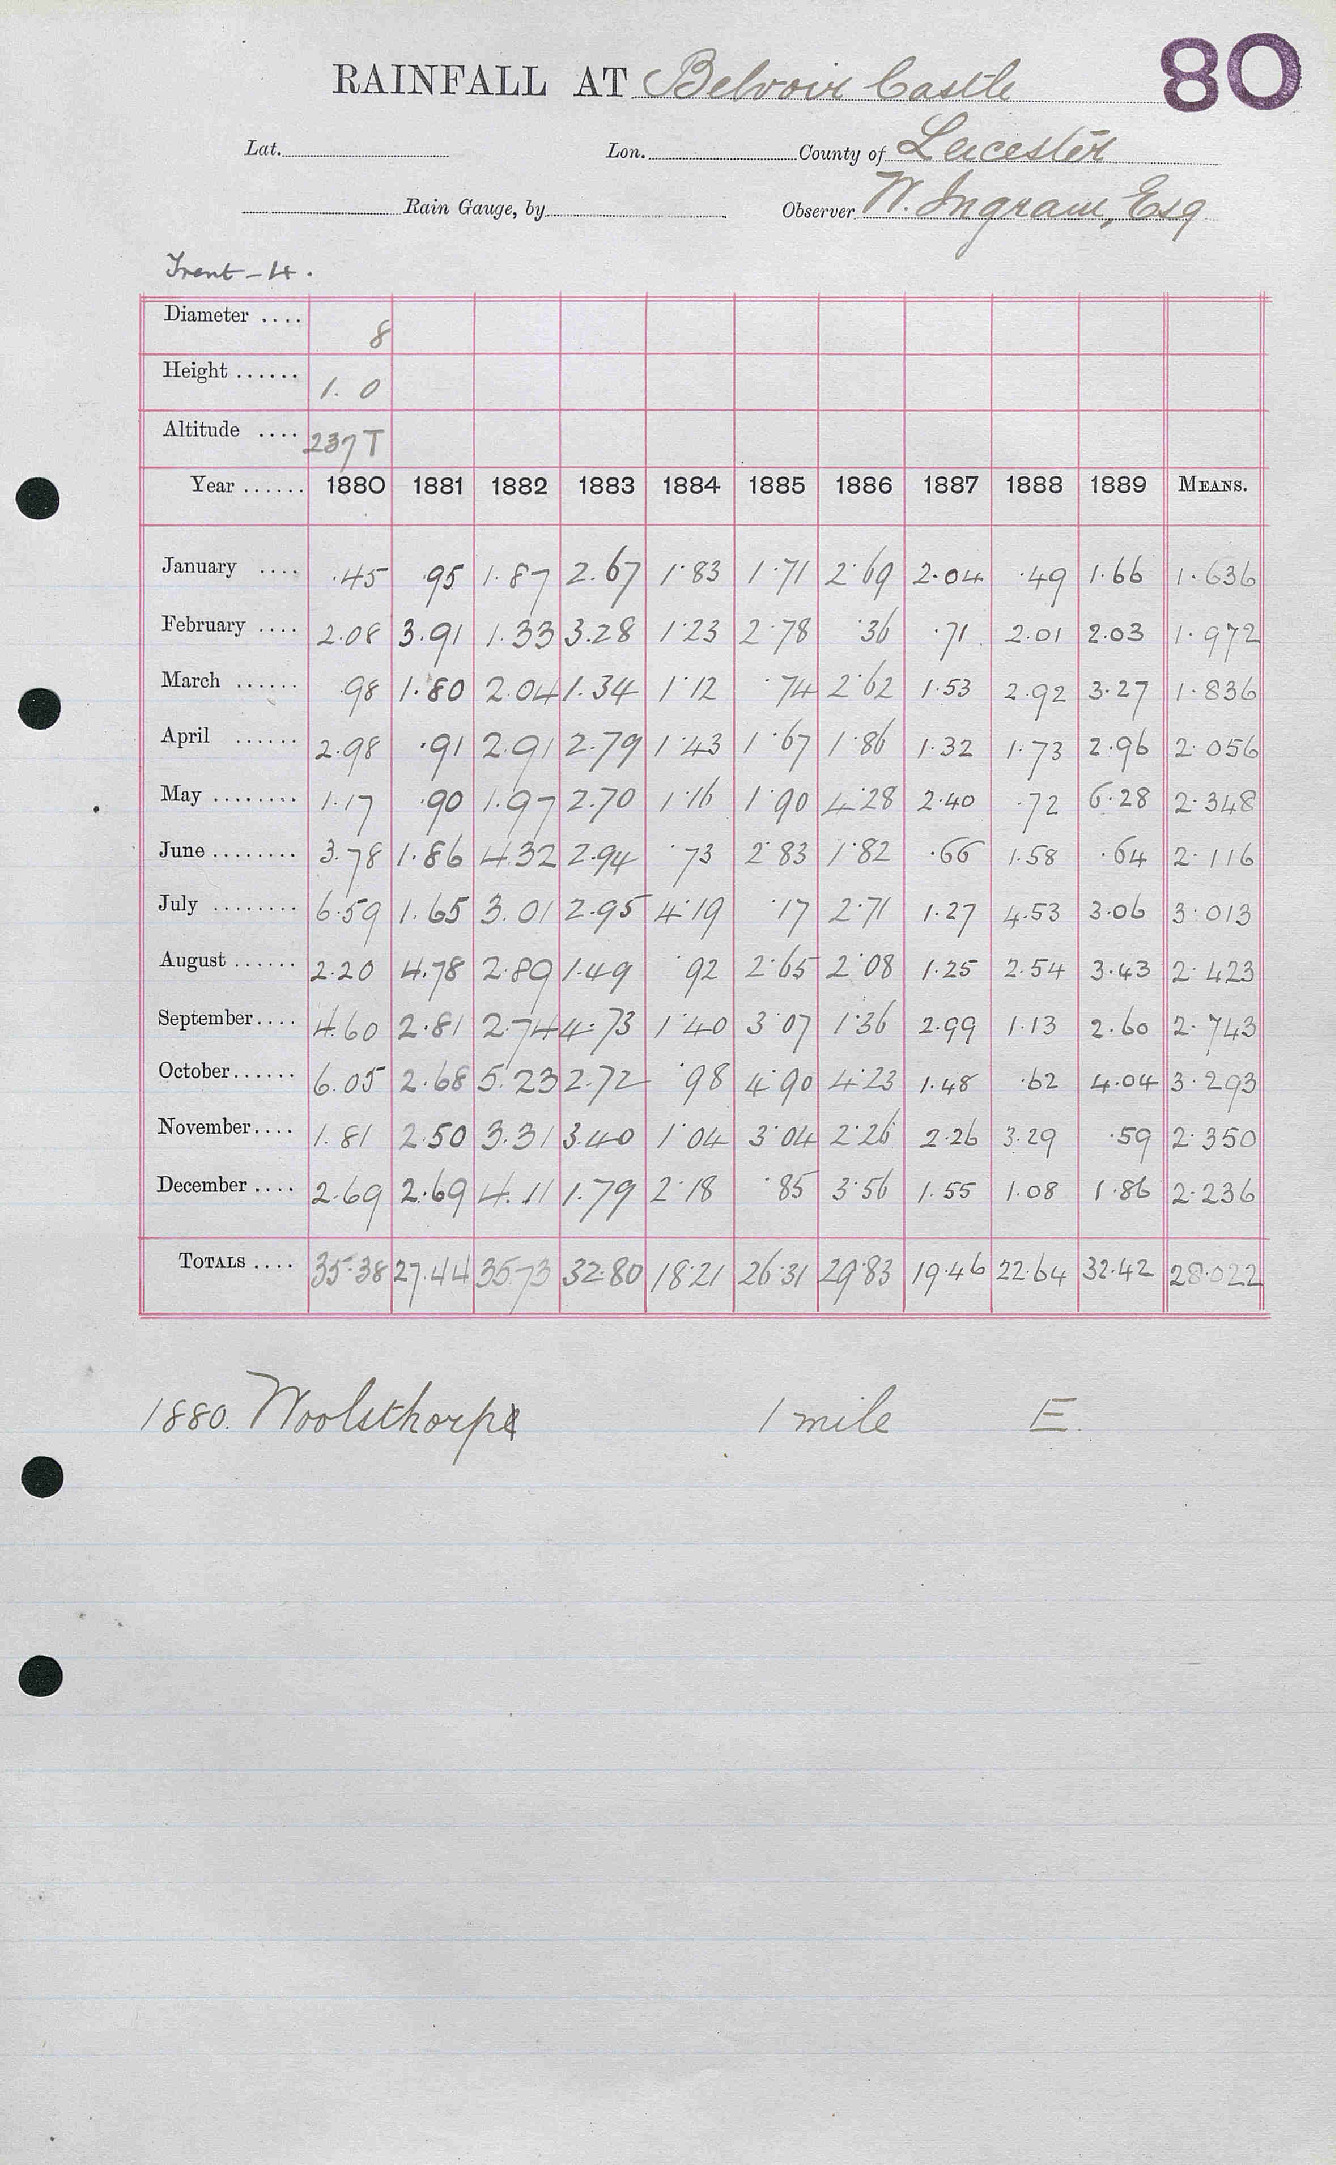 80
RAINFALL AT Belvoir Castle
Lat. Lon. County of Leicester
Rain Gauge, by Observer W. Ingram, Esq
Trent - 4.
Diameter .... 8
Height ...... 1. 0
Altitude .... 237 T
Year ...... 1880 1881 1882 1883 1884 1885 1886 1887 1888 1889 MEANS.
January .... .45 .95 1.87 2.67 1.83 1.71 2.69 2.04 .49 1.66 1.636
February .... 2.08 3.91 1.33 3.28 1.23 2.78 .36 .71 2.01 2.03 1.972
March ...... .98 1.80 2.04 1.34 1.12 .74 2.62 1.53 2.92 3.27 1.836
April ...... 2.98 .91 2.91 2.79 1.43 1.67 1.86 1.32 1.73 2.96 2.056
May ........ 1.17 .90 1.97 2.70 1.16 1.90 4.28 2.40 .72 6.28 2.348
June ........ 3.78 1.86 4.32 2.94 .73 2.83 1.82 .66 1.58 .64 2.116
July ........ 6.59 1.65 3.01 2.95 4.19 .17 2.71 1.27 4.53 3.06 3.013
August ...... 2.20 4.78 2.89 1.49 .92 2.65 2.08 1.25 2.54 3.43 2.423
September .... 4.60 2.81 2.74 4.73 1.40 3.07 1.36 2.99 1.13 2.60 2.743
October ...... 6.05 2.68 5.23 2.72 .98 4.90 4.23 1.48 .62 4.04 3.293
November .... 1.81 2.50 3.31 3.40 1.04 3.04 2.26 2.26 3.29 .59 2.350
December .... 2.69 2.69 4.11 1.79 2.18 .85 3.56 1.55 1.08 1.86 2.236
TOTALS .... 35.38 27.44 35.73 32.80 18.21 26.31 29.83 19.46 22.64 32.42 28.022
1880. Woolsthorpe 1 mile E.